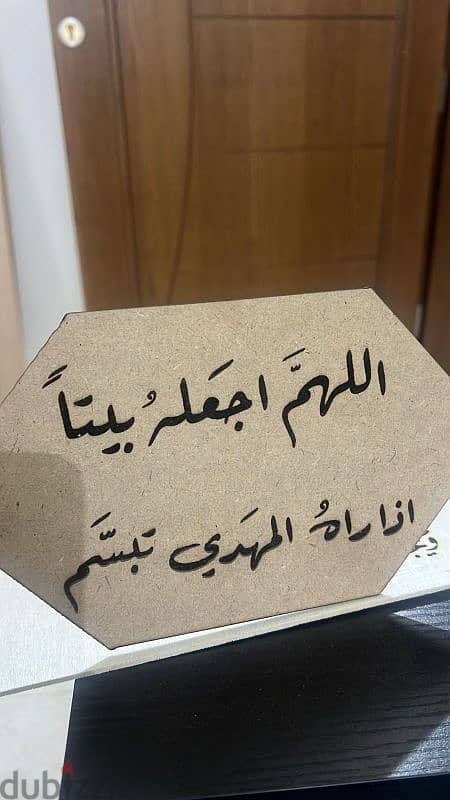 اللهمَّ اجعَلهُ بيتاً
اذا راهُ المهَدي تبسَّم
dubiz